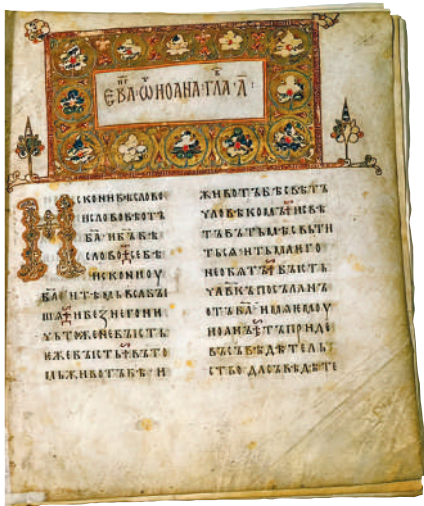 ЄВА·ѠИОАНА·ГЛА·А҃:
ИСКОНИБѢСЛОВО
ИСЛОВОБѢОТЪ
БА҃·ИБЪ҃БѢ
СЛОВО·СЕБѢ
ИСКОНИОУ
БА҃·ИТѢМЬВСѦБЫ
ШѦ·ИБЕЖНЕГОНИ
ЧЬТОЖЕНЕБЪІСТЬ
ѤЖЕБЪІСТЬ·ВЪТО
МЬЖИВОТЪБѢ·И
ЖИВОТЪБѢСВѢТЪ
ЧЛОВѢКОМЪ·ИСВѢ
ТЪВЪТЬМѢСВЬТИ
ТЬСѦ·ИТЬМАѤГО
НЕОБѦТЪ·БЪІСТЬ
ЧЛ҃ВКЪПОСЪЛАНЪ
ОТЪБА҃·ИМѦѤМОУ
ИОАНЪ·ТЪПРИДЕ
ВЪСЪВѢДѢТЕЛЬ
СТВО·ДАСЪВѢДѢТЕ